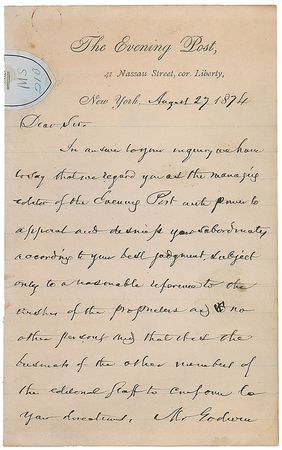 The Evening Post,
41 Nassau Street, cor. Liberty,
New York, August 27 1874
Dear Sir.
In answer to your inquiry we have
to say that we regard you as the managing
editor of the Evening Post with power to
appoint and dismiss your subordinates
according to your best judgment, subject
only to a reasonable reference to the
wishes of the proprietors and no
other persons and that it is the
business of the other members of
the editorial staff to conform to
your directions. Mr Godwin
MS
210